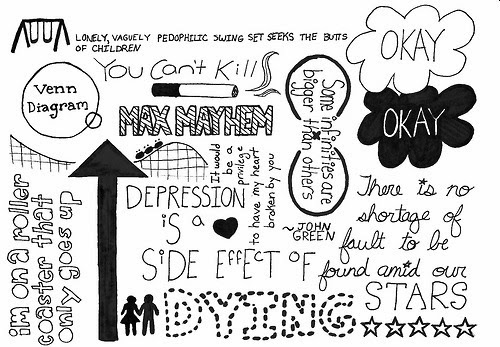 LONELY, VAGUELY PEDOPHILIC SWING SET SEEKS THE BUTTS
OF CHILDREN
OKAY
OKAY
You Can't Kill
MAX MAYHEM
Venn
Diagram
Some infinities are
bigger than others
It would
be a
privilege
to have my heart
broken by you
~JOHN
GREEN
im on a roller
coaster that
only goes up
DEPRESSION
is a
SIDE EFFECT OF
DYING
There is no
shortage of
fault to be
found amid our
STARS